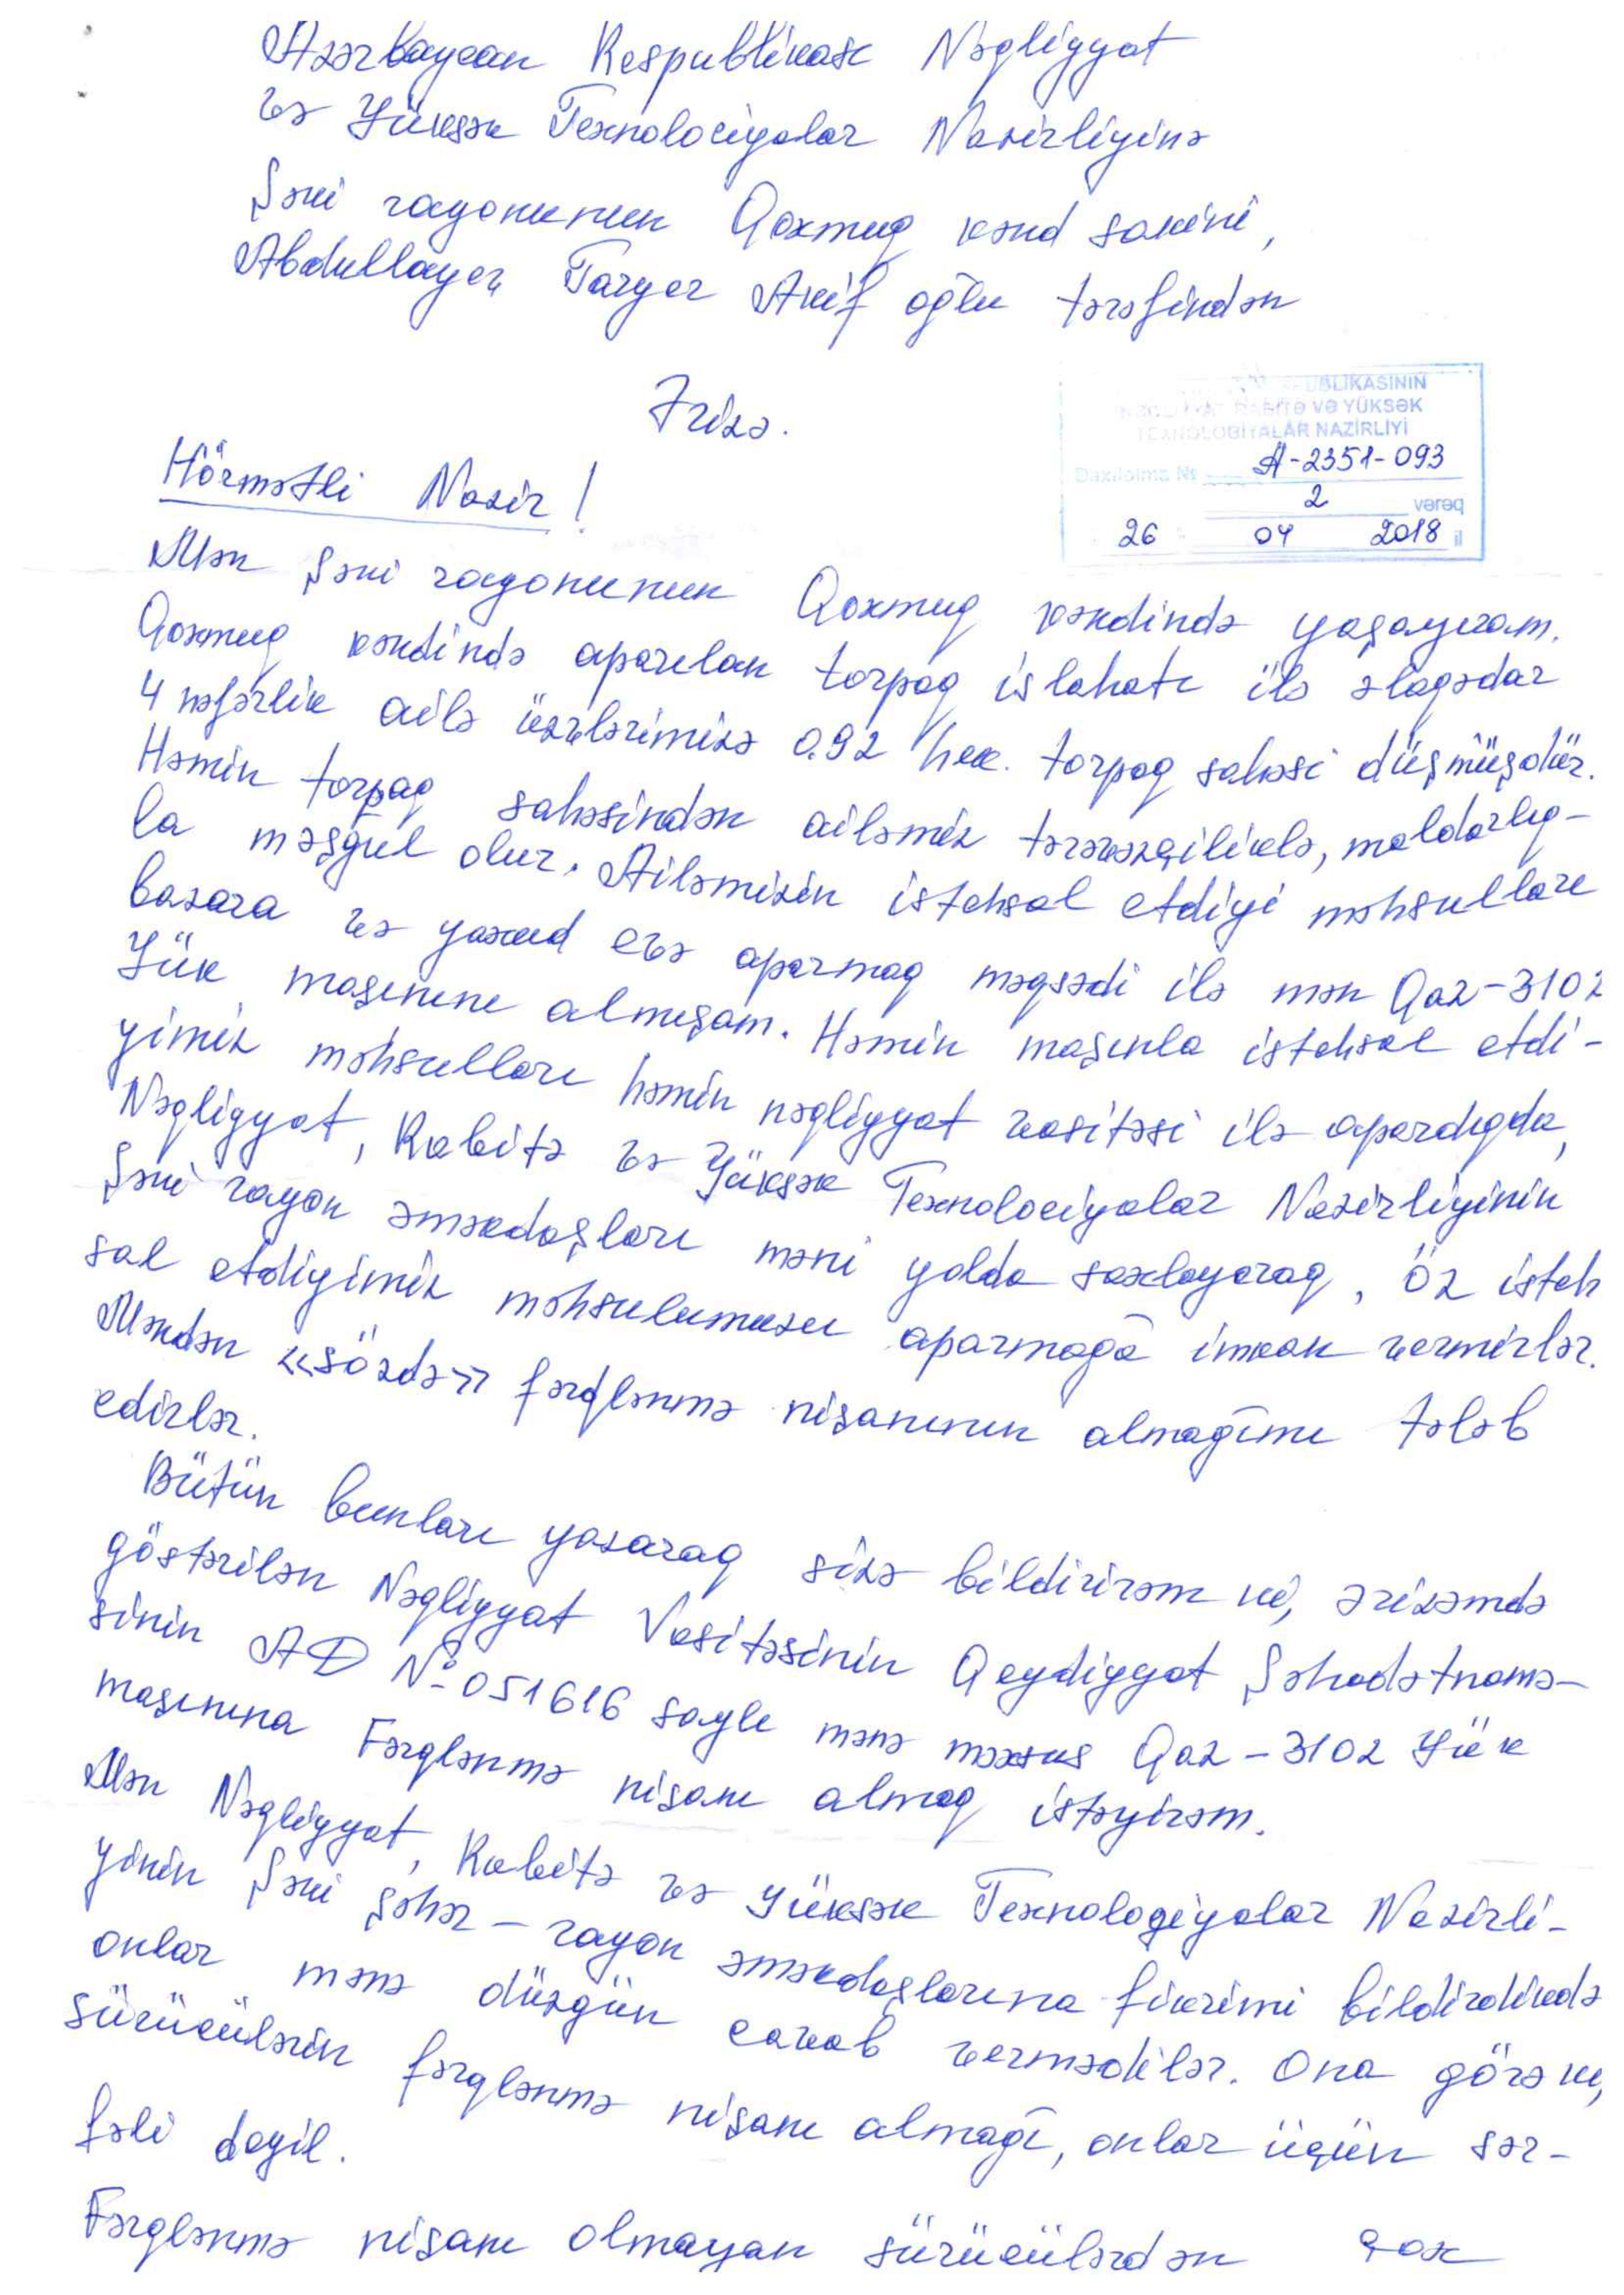 Azərbaycan Respublikası Nəqliyyat
və Yüksək Texnologiyalar Nazirliyinə
Şəki rayonunun Qoxmuq kənd sakini,
Abdullayev Taryer Akif oğlu tərəfindən
Ərizə.
UBLİKASININ
RABİTƏ VƏ YÜKSƏK
TEXNOLOGİYALAR NAZİRLİYİ
Daxilolma № A-2351-093
2 vərəq
26 04 2018 il
Hörmətli Nazir!
Mən Şəki rayonunun Qoxmuq kəndində yaşayıram.
Qoxmuq kəndində aparılan torpaq islahatı ilə əlaqədar
4 nəfərlik ailə üzvlərimizə 0.92 hek. torpaq sahəsi düşmüşdür.
Həmin torpaq sahəsindən ailəmiz tərəvəzçiliklə, maldarlıq-
la məşğul olur. Ailəmizin istehsal etdiyi məhsulları
bazara və yaxud evə aparmaq məqsədi ilə mən Qaz-3102
Yük maşınını almışam. Həmin maşınla istehsal etdi-
yimiz məhsulları həmin nəqliyyat vasitəsi ilə apardıqda,
Nəqliyyat, Rabitə və Yüksək Texnolociyalar Nazirliyinin
Şəki rayon əməkdaşları məni yolda saxlayaraq, öz isteh
sal etdiyimiz məhsulumuzu aparmağa imkan vermirlər.
Məndən «sözdə» fərqlənmə nişanının almağımı tələb
edirlər.
Bütün bunları yazaraq sizə bildirirəm ki, ərizəmdə
göstərilən Nəqliyyat Vasitəsinin Qeydiyyat Şəhadətnamə-
sinin AD №051616 saylı mənə məxsus Qaz-3102 Yük
maşınına Fərqlənmə nişanı almaq istəyirəm.
Mən Nəqliyyat, Rabitə və Yüksək Texnologiyalar Nazirli-
yinin Şəki şəhər-rayon əməkdaşlarına fikrimi bildirdikdə
onlar mənə düzgün cavab vermədilər. Ona görə ki,
sürücülərin fərqlənmə nişanı almağı, onlar üçün sər-
fəli deyil.
Fərqlənmə nişanı olmayan sürücülərdən çox